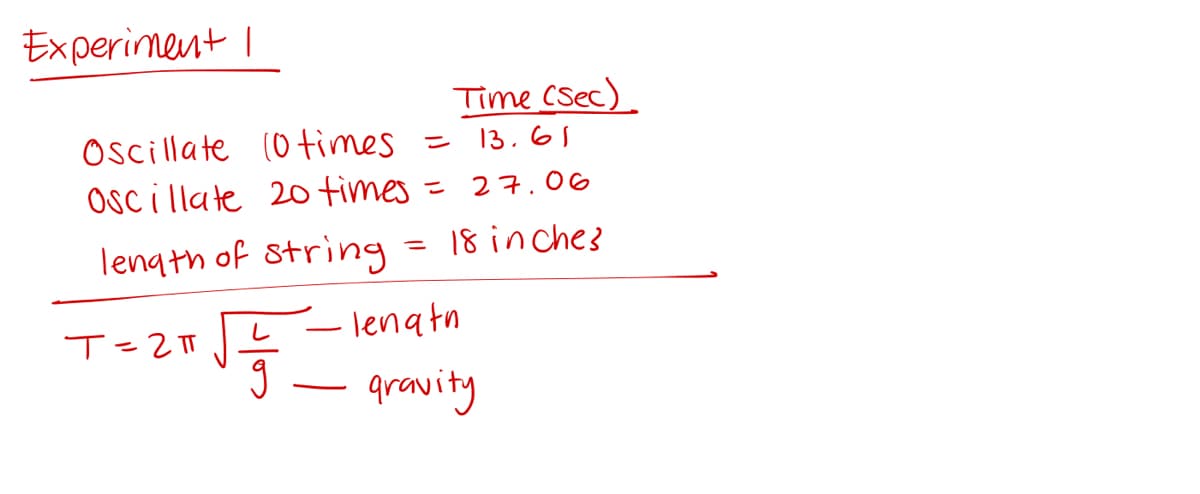 Experiment 1
Time (sec)
Oscillate 10 times = 13.61
Oscillate 20 times = 27.06
length of string = 18 inches
T = 2π √(L/g) — length
— gravity